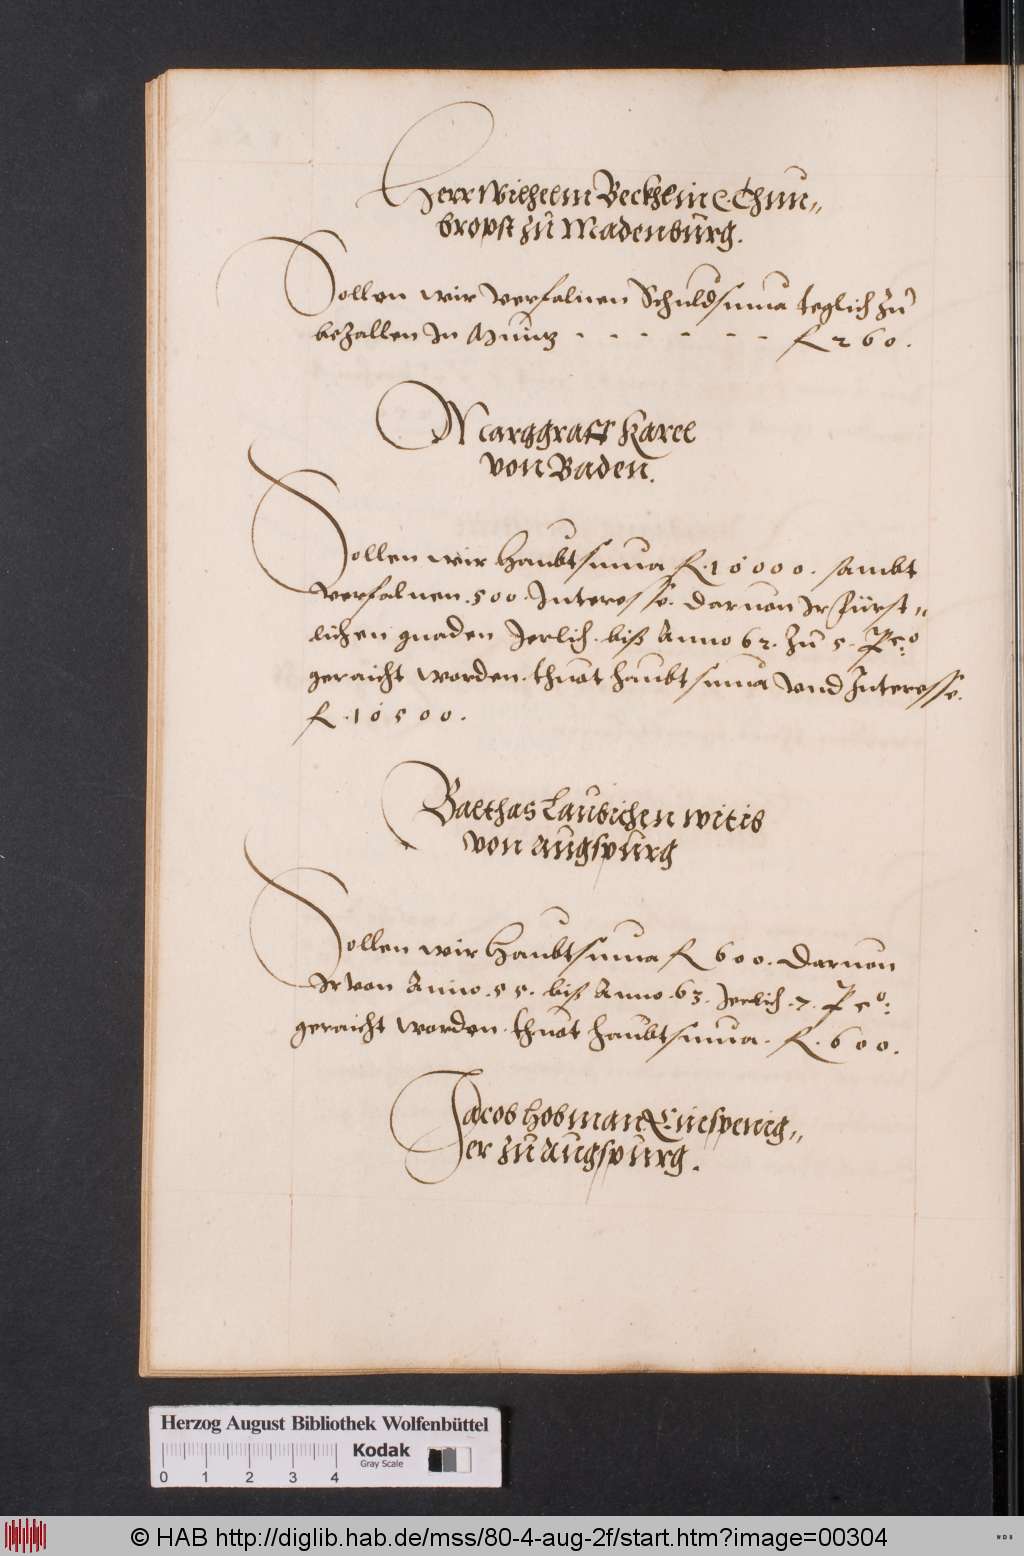 Herr Wilhelm Beckhlin Thum„
bropst zu Madenburg.
Sollen wir verfalnen Schuldsuma teglich zu
bezallen In Muntz - - - - - - f 260.
Marggraff Karel
von Baden.
Sollen wir Haubtsuma f. 10000. sambt
verfalnen .500. Interesse. daruon Ir Fürst„
lichen gnaden Jerlich biß Anno 62. zu 5. P co
geraicht worden. thuot haubtsuma vnd Interesse.
f. 10500.
Balthas Laubichen witib
von Augspurg
Sollen wir Haubtsuma f 600. Daruon
Ir von Anno .55. biß Anno .63. Jerlich .7. P co:
geraicht worden. thuot haubtsuma. f. 600.
Jacob Hobman Einspenig„
er zu Augspurg.
Herzog August Bibliothek Wolfenbüttel
Kodak
Gray Scale
0 1 2 3 4
© HAB http://diglib.hab.de/mss/80-4-aug-2f/start.htm?image=00304